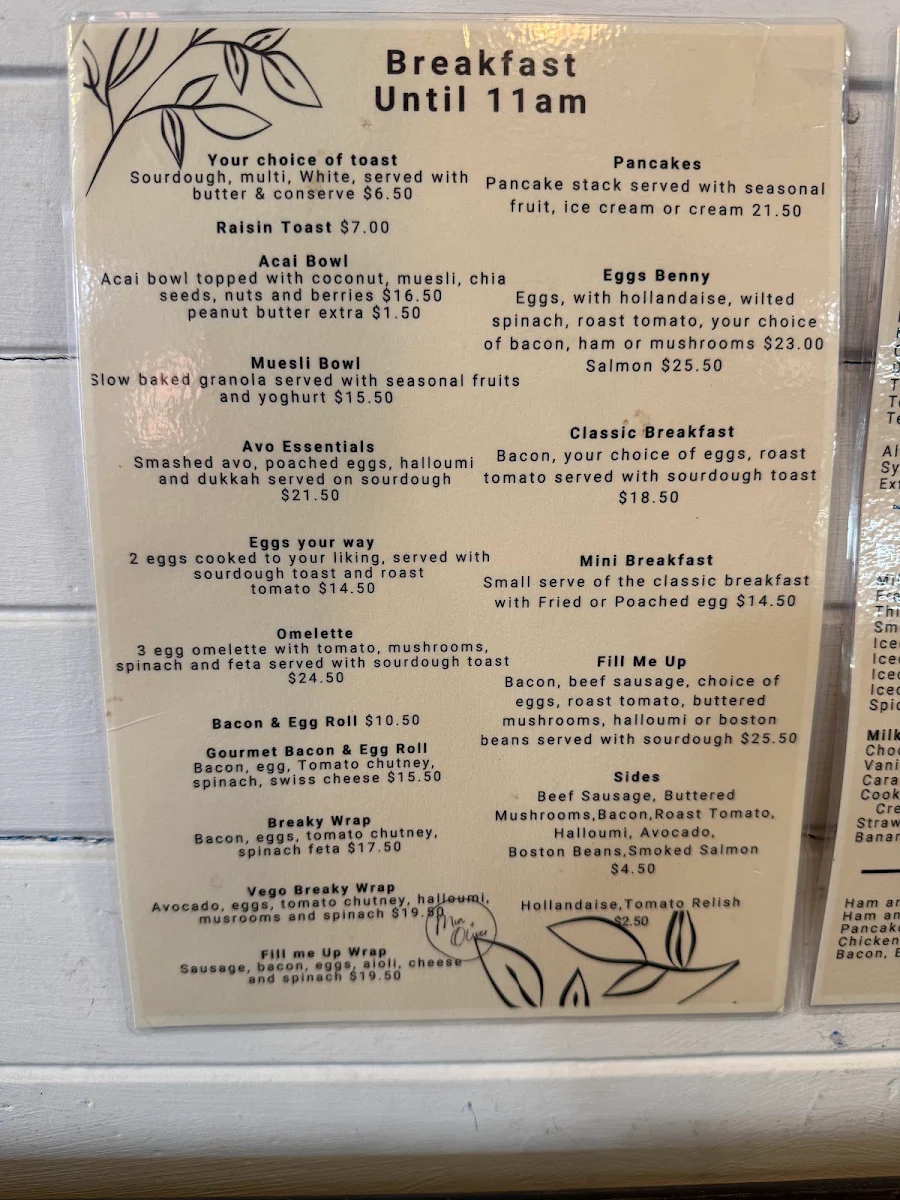 Breakfast
Until 11am
Your choice of toast
Sourdough, multi, White, served with
butter & conserve $6.50
Raisin Toast $7.00
Acai Bowl
Acai bowl topped with coconut, muesli, chia
seeds, nuts and berries $16.50
peanut butter extra $1.50
Muesli Bowl
Slow baked granola served with seasonal fruits
and yoghurt $15.50
Avo Essentials
Smashed avo, poached eggs, halloumi
and dukkah served on sourdough
$21.50
Eggs your way
2 eggs cooked to your liking, served with
sourdough toast and roast
tomato $14.50
Omelette
3 egg omelette with tomato, mushrooms,
spinach and feta served with sourdough toast
$24.50
Bacon & Egg Roll $10.50
Gourmet Bacon & Egg Roll
Bacon, egg, Tomato chutney,
spinach, swiss cheese $15.50
Breaky Wrap
Bacon, eggs, tomato chutney,
spinach feta $17.50
Vego Breaky Wrap
Avocado, eggs, tomato chutney, halloumi,
musrooms and spinach $19.50
Fill me Up Wrap
Sausage, bacon, eggs, aioli, cheese
and spinach $19.50
Pancakes
Pancake stack served with seasonal
fruit, ice cream or cream 21.50
Eggs Benny
Eggs, with hollandaise, wilted
spinach, roast tomato, your choice
of bacon, ham or mushrooms $23.00
Salmon $25.50
Classic Breakfast
Bacon, your choice of eggs, roast
tomato served with sourdough toast
$18.50
Mini Breakfast
Small serve of the classic breakfast
with Fried or Poached egg $14.50
Fill Me Up
Bacon, beef sausage, choice of
eggs, roast tomato, buttered
mushrooms, halloumi or boston
beans served with sourdough $25.50
Sides
Beef Sausage, Buttered
Mushrooms,Bacon,Roast Tomato,
Halloumi, Avocado,
Boston Beans,Smoked Salmon
$4.50
Hollandaise,Tomato Relish
$2.50
Ext
Thi
Sm
Iced
Iced
Iced
Iced
Spic
Milk
Choc
Vani
Cara
Cook
Cre
Straw
Banan
Ham an
Ham an
Pancak
Chicken
Bacon, E